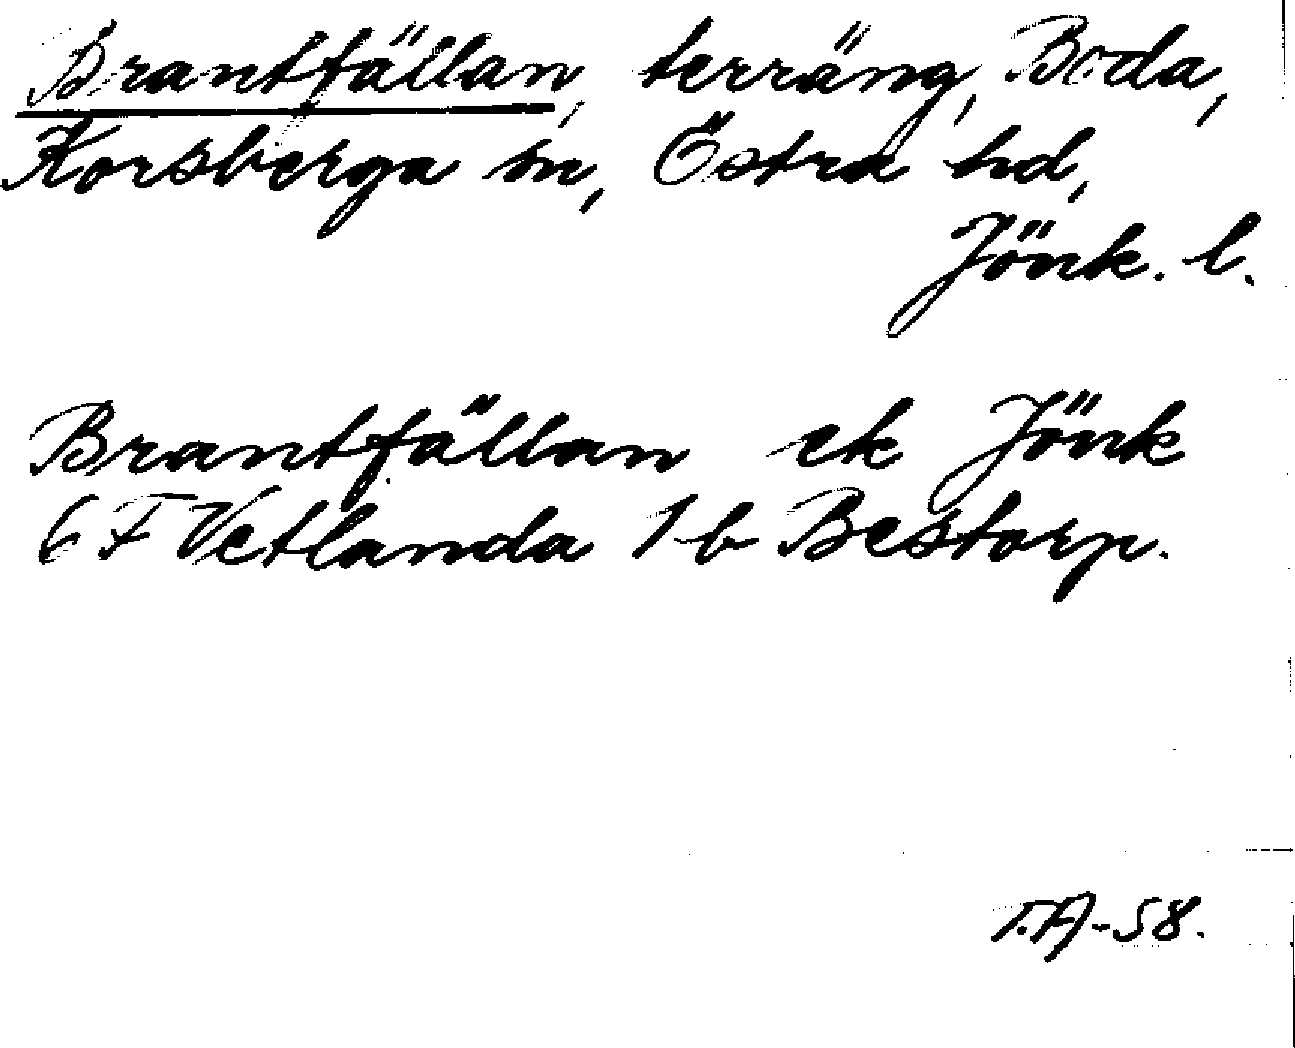 Brantfällan, terräng, Boda,
Korsberga sn, Östra hd,
Jönk. l.
Brantfällan ek Jönk
6 F Vetlanda 1 b Bestorp.
T.A-58.